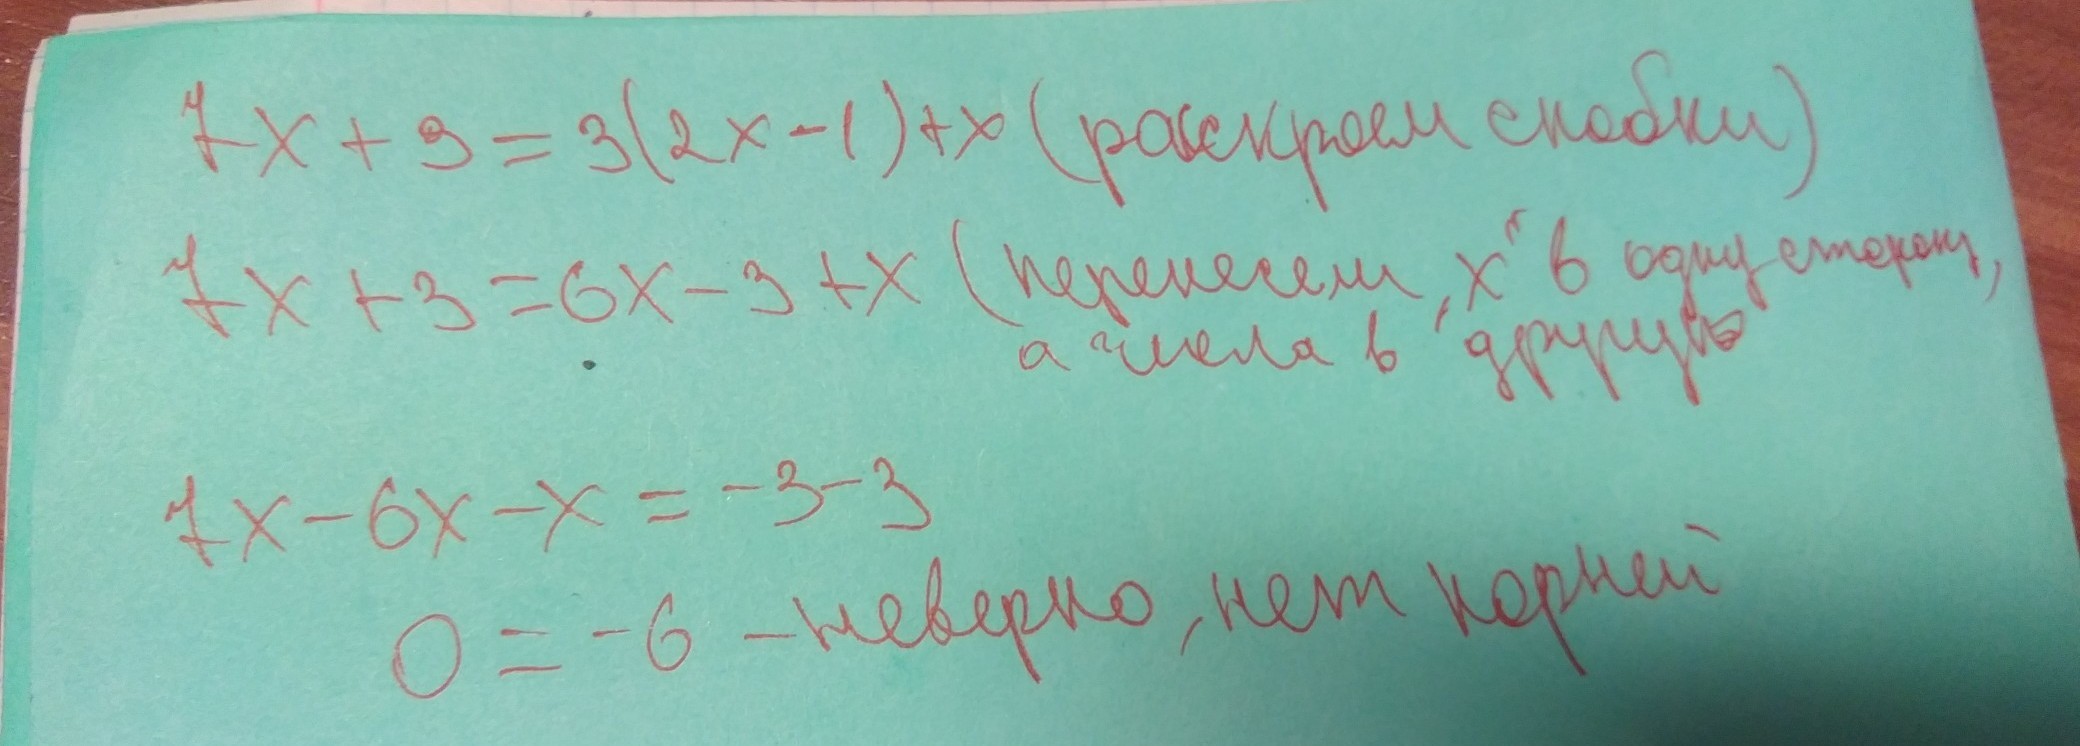 7x + 9 = 3(2x - 1) + x (раскроем скобки)
7x + 3 = 6x - 3 + x (перенесем „x" в одну сторону,
а числа в другую
7x - 6x - x = -3 - 3
0 = -6 - неверно, нет корней